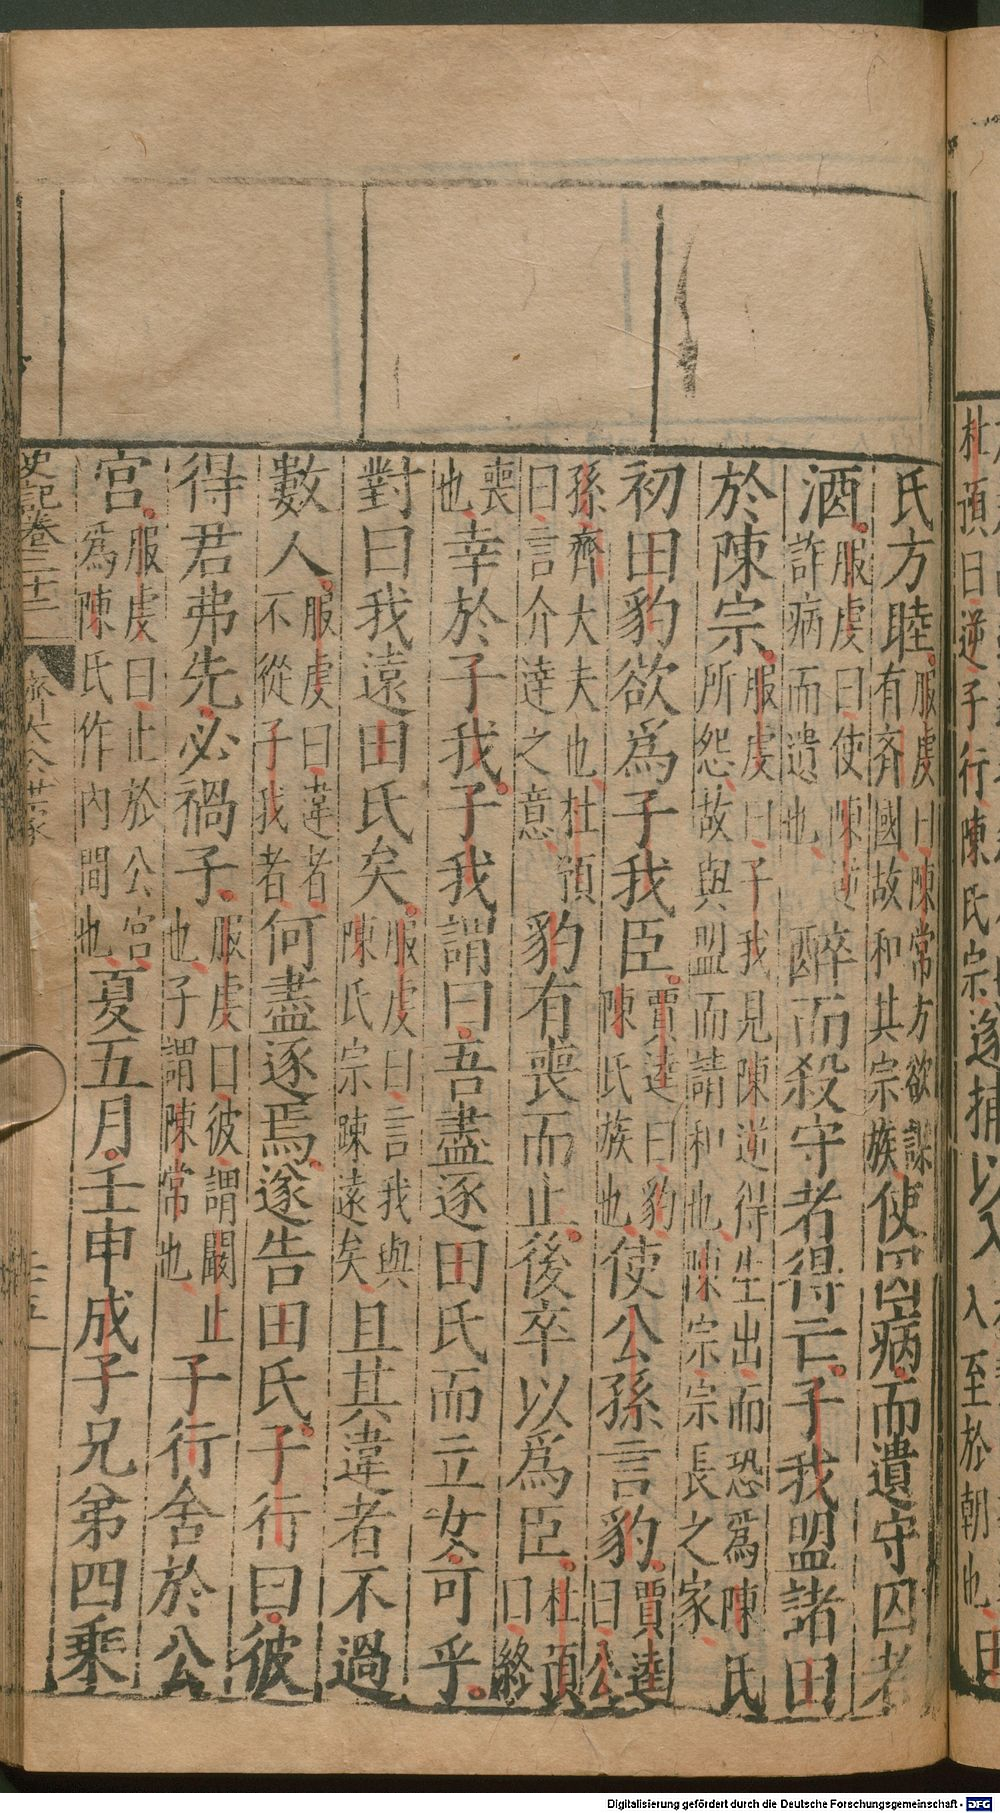 杜預曰逆子行陳氏宗遂捕以入入至於朝也田
氏方睦服虔曰陳常方欲謀有齊國故和其宗族使囚病而遺守囚者
酒服虔曰使陳逆詐病而遺也醉而殺守者得亡子我盟諸田
於陳宗服虔曰子我見陳逆得生出而恐爲陳氏所怨故與盟而請和也陳宗宗長之家
初田豹欲爲子我臣賈逵曰豹陳氏族也使公孫言豹賈逵曰公
孫齊大夫也杜預曰言介達之意豹有喪而止後卒以爲臣杜預曰終
喪也幸於子我子我謂曰吾盡逐田氏而立女可乎
對曰我遠田氏矣服虔曰言我與陳氏宗踈遠矣且其違者不過
數人服虔曰違者不從子我者何盡逐焉遂告田氏子行曰彼
得君弗先必禍子服虔曰彼謂闞止也子謂陳常也子行舍於公
宮服虔曰止於公宮爲陳氏作內間也夏五月壬申成子兄弟四乘
史記卷三十二 齊太公世家
Digitalisierung gefördert durch die Deutsche Forschungsgemeinschaft - DFG